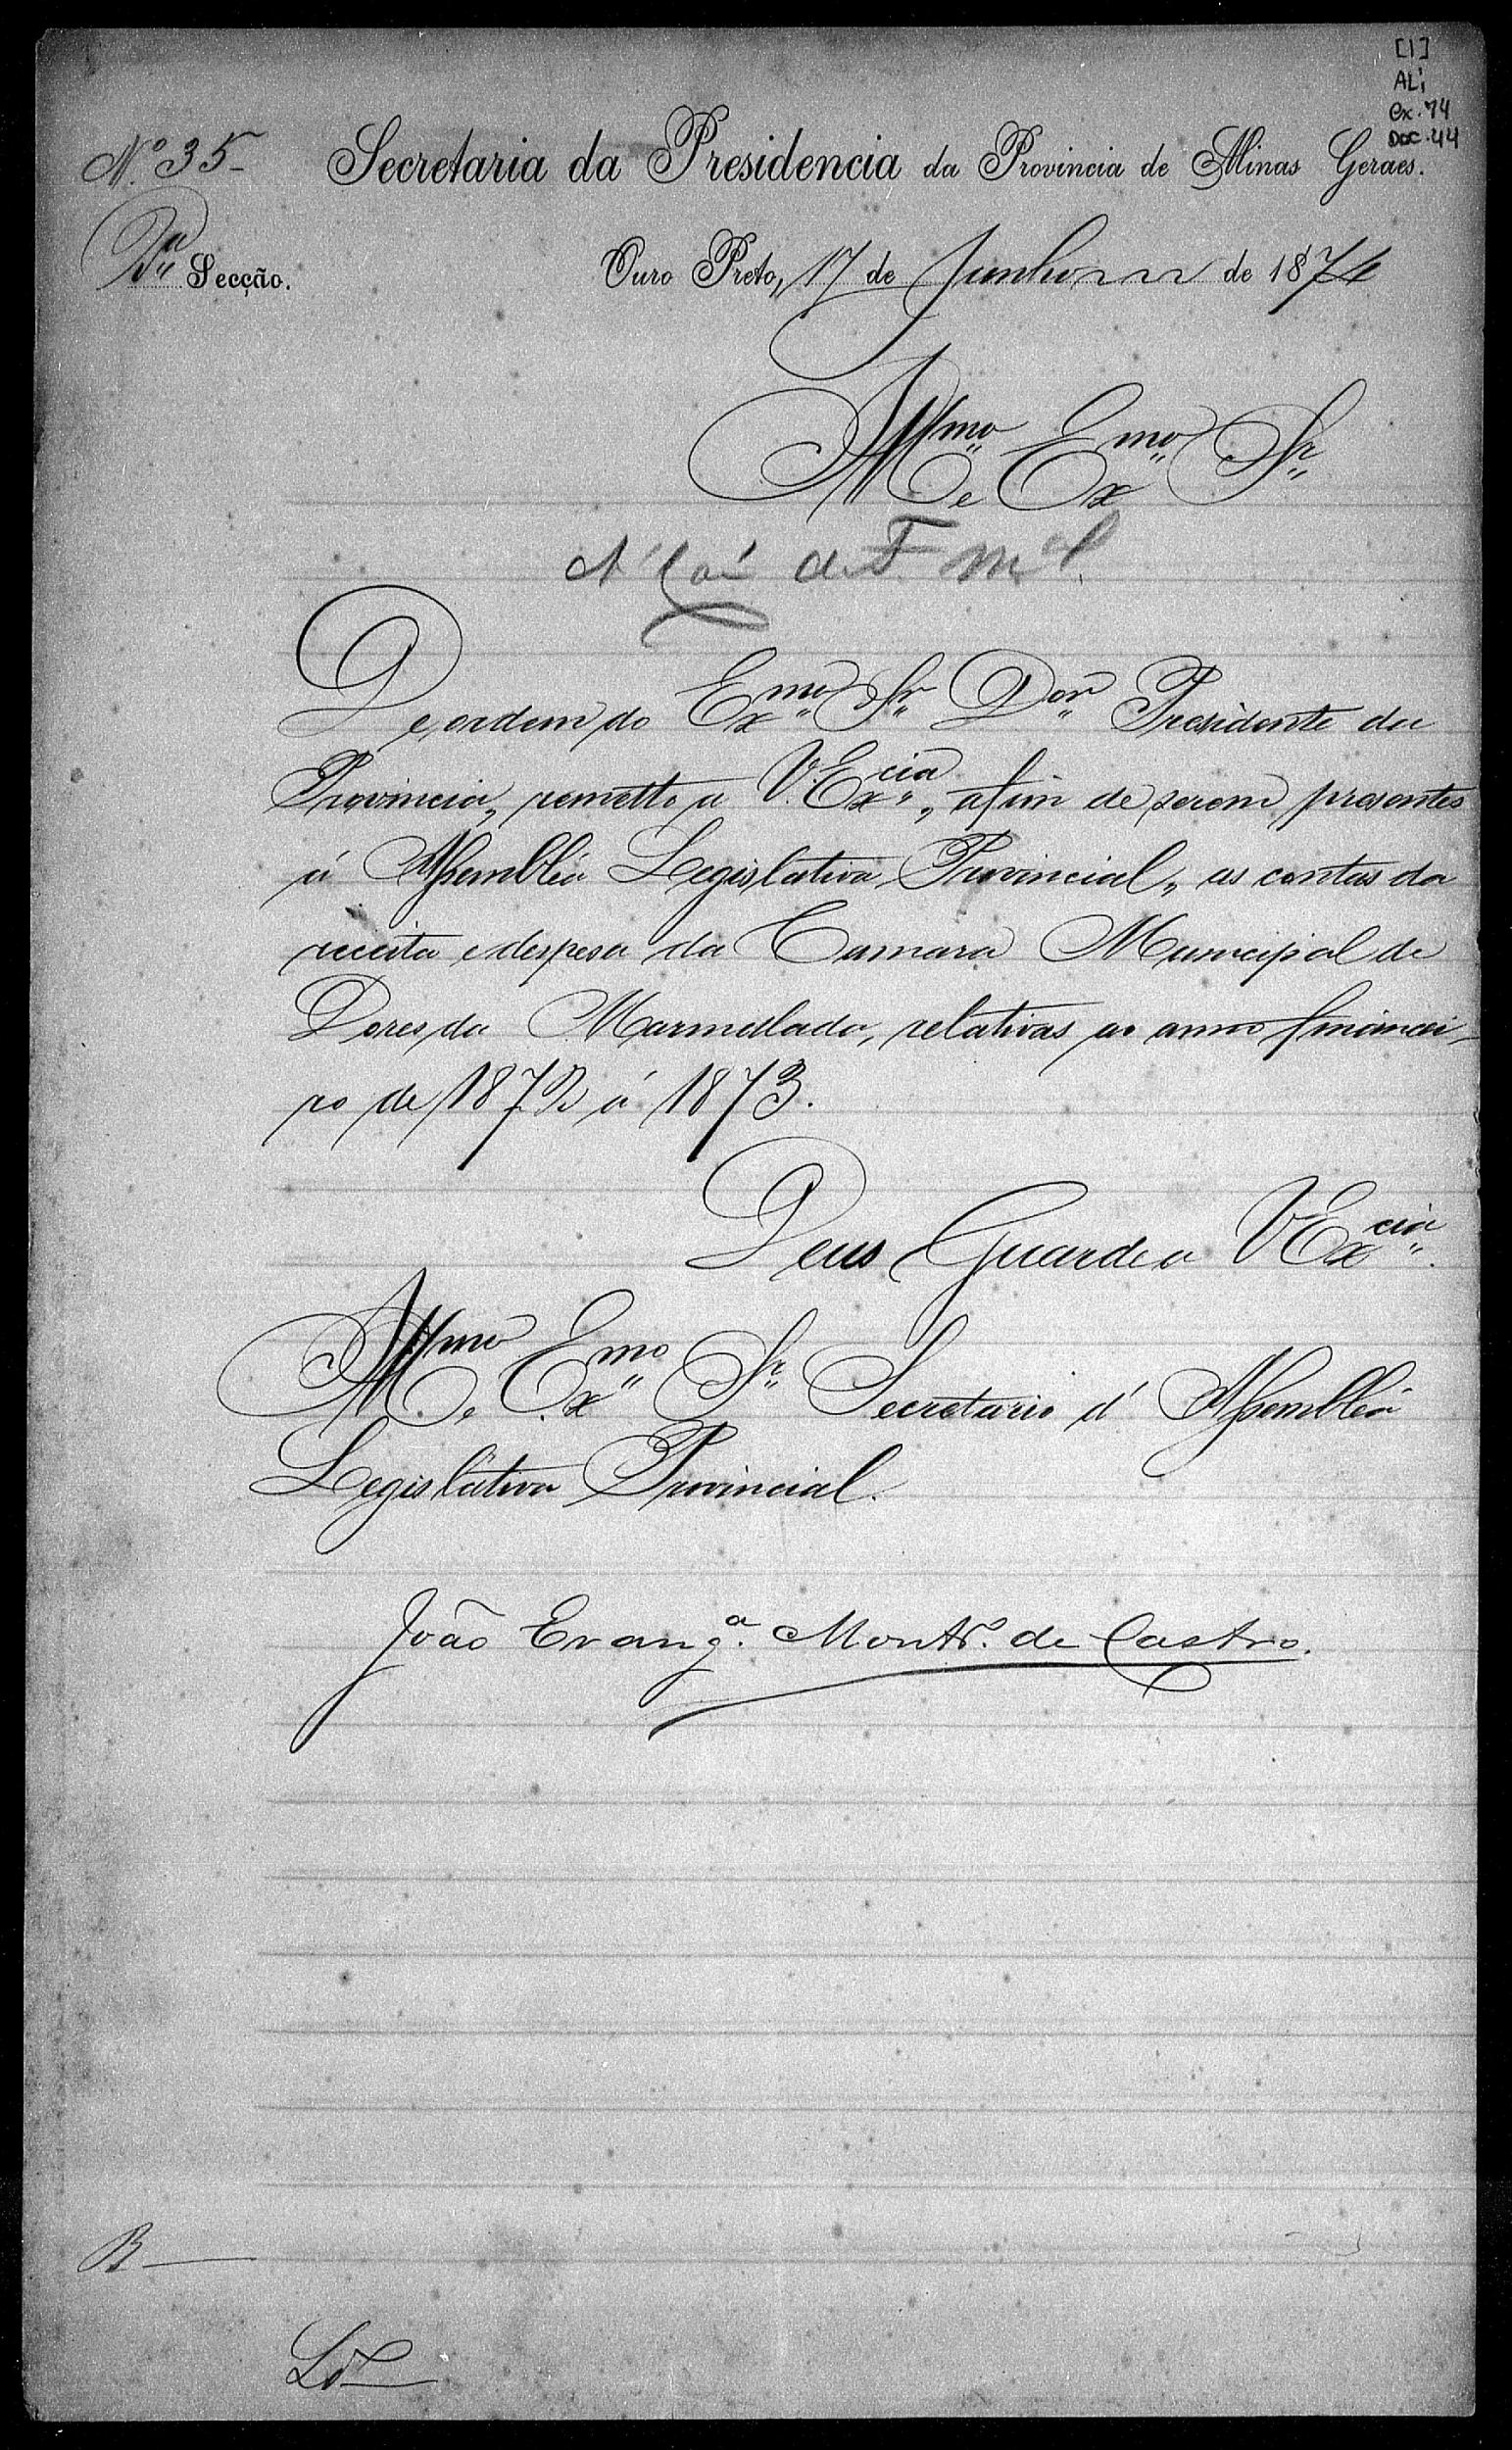 [1]
AL1
cx. 74
DOC. 44
Nº 35- Secretaria da Presidencia da Provincia de Minas Geraes.
2ª Secção. Ouro Preto, 17 de Junho de 1874
Illmo e Exmo Sr
A' Com de F. Mal
De ordem do Exmo Sr Dor Presidente da
Provincia, remetto a V. Excia, afim de serem presentes
á Assembléa Legislativa Provincial, as contas da
receita e despesa da Camara Municipal de
Dores do Marmellada, relativas ao anno financei-
ro de 1872 á 1873.
Deus Guarde a V Excia.
Illmo e Exmo Sr Secretario d' Assembléa
Legislativa Provincial.
João Evangª. Montrº. de Castro.